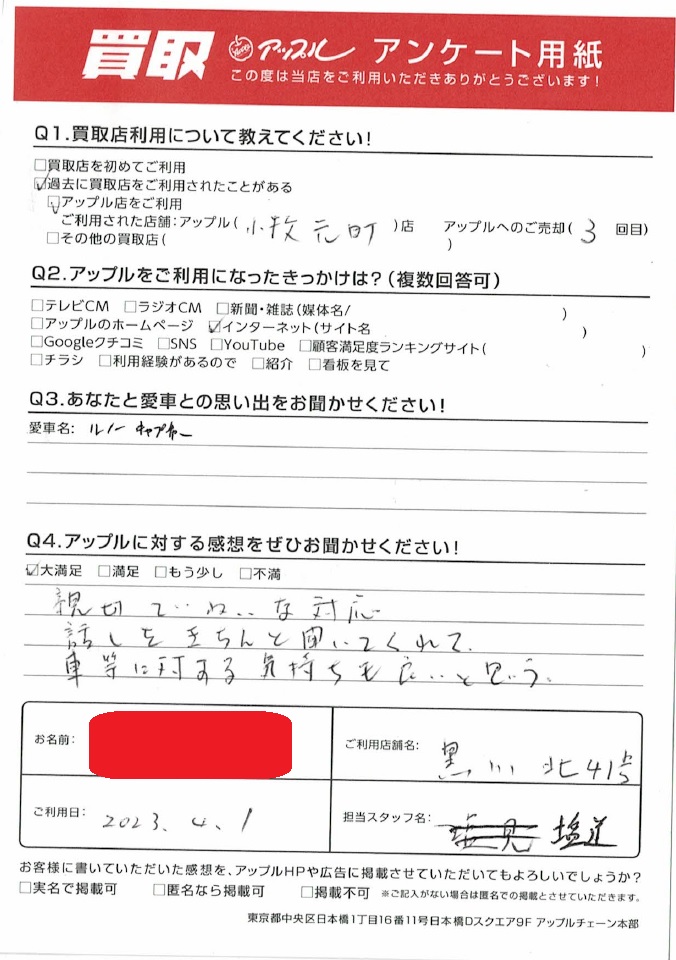 買取 アップル アンケート用紙
この度は当店をご利用いただきありがとうございます！
Q1.買取店利用について教えてください！
□買取店を初めてご利用
☑過去に買取店をご利用されたことがある
☑アップル店をご利用
ご利用された店舗：アップル（小牧元町）店 アップルへのご売却（3回目）
□その他の買取店（ ）
Q2.アップルをご利用になったきっかけは？（複数回答可）
□テレビCM □ラジオCM □新聞・雑誌（媒体名/ ）
□アップルのホームページ ☑インターネット（サイト名 ）
□Googleクチコミ □SNS □YouTube □顧客満足度ランキングサイト（ ）
□チラシ □利用経験があるので □紹介 □看板を見て
Q3.あなたと愛車との思い出をお聞かせください！
愛車名： ルノー キャプチャー
Q4.アップルに対する感想をぜひお聞かせください！
☑大満足 □満足 □もう少し □不満
親切ていねいな対応
話しをきちんと聞いてくれて、
車等に対する気持ちも良いと思う。
お名前：
ご利用店舗名： 黒川北41号
ご利用日： 2023.4.1
担当スタッフ名： 塩見 塩道
お客様に書いていただいた感想を、アップルHPや広告に掲載させていただいてもよろしいでしょうか？
□実名で掲載可 □匿名なら掲載可 □掲載不可 ※ご記入がない場合は匿名での掲載とさせていただきます。
東京都中央区日本橋1丁目16番11号日本橋Dスクエア9F アップルチェーン本部